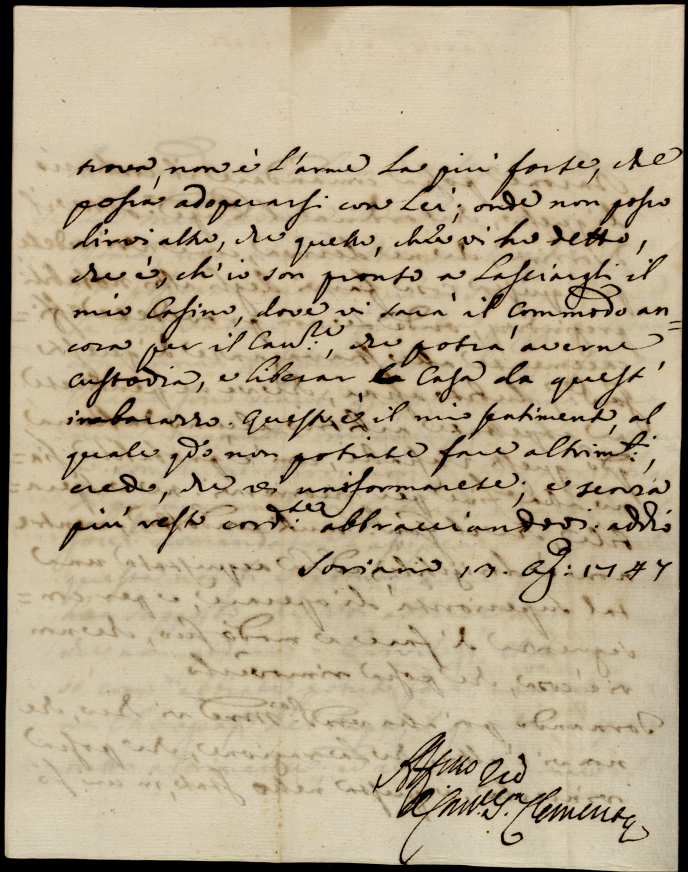 trova, non è l'arme la più forte, che
possa adoperarsi con Lei; onde non posso
dirvi altro, che quello, che vi ho detto,
che è, ch'io son pronto a lasciargli il
mio Casino, dove vi sarà il commodo an=
cora per il Cav.re, che potrà averne
custodia, e liberar la Casa da quest'
imbarazzo. Questo è il mio sentimento, al
quale q.do non potiate fare altrim.ti,
credo, che vi uniformarete; e senza
più resto cord.te abbracciandovi. addio
Soriano 13. Ag.o: 1747
Aff.mo Zio
Il Card.l S. Clemente